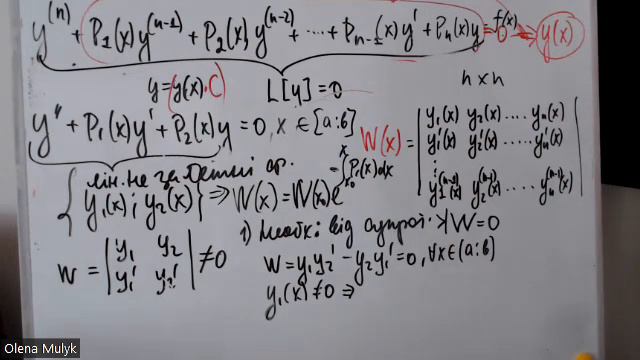 y⁽ⁿ⁾ + P₁(x)y⁽ⁿ⁻¹⁾ + P₂(x)y⁽ⁿ⁻²⁾ + ... + Pₙ₋₁(x)y' + Pₙ(x)y = 0 f(x) y(x)
y = y(x)·C) L[y] = 0 n x n
y'' + P₁(x)y' + P₂(x)y = 0, x ∈ [a;b]
W(x) = | y₁(x) y₂(x) .... yₙ(x) |
| y₁'(x) y₂'(x) .... yₙ'(x) |
⋮
| y₁⁽ⁿ⁻¹⁾(x) y₂⁽ⁿ⁻¹⁾(x) .... yₙ⁽ⁿ⁻¹⁾(x) |
лін. не
{ y₁(x); y₂(x) } ⇒ W(x) = W(x₀)e^(-∫ₓ₀ˣ P₁(x)dx)
1) від W = 0
W = | y₁ y₂ | ≠ 0
| y₁' y₂' |
W = y₁y₂' - y₂y₁' = 0, ∀x ∈ (a;b)
y₁(x) ≠ 0 ⇒
Olena Mulyk